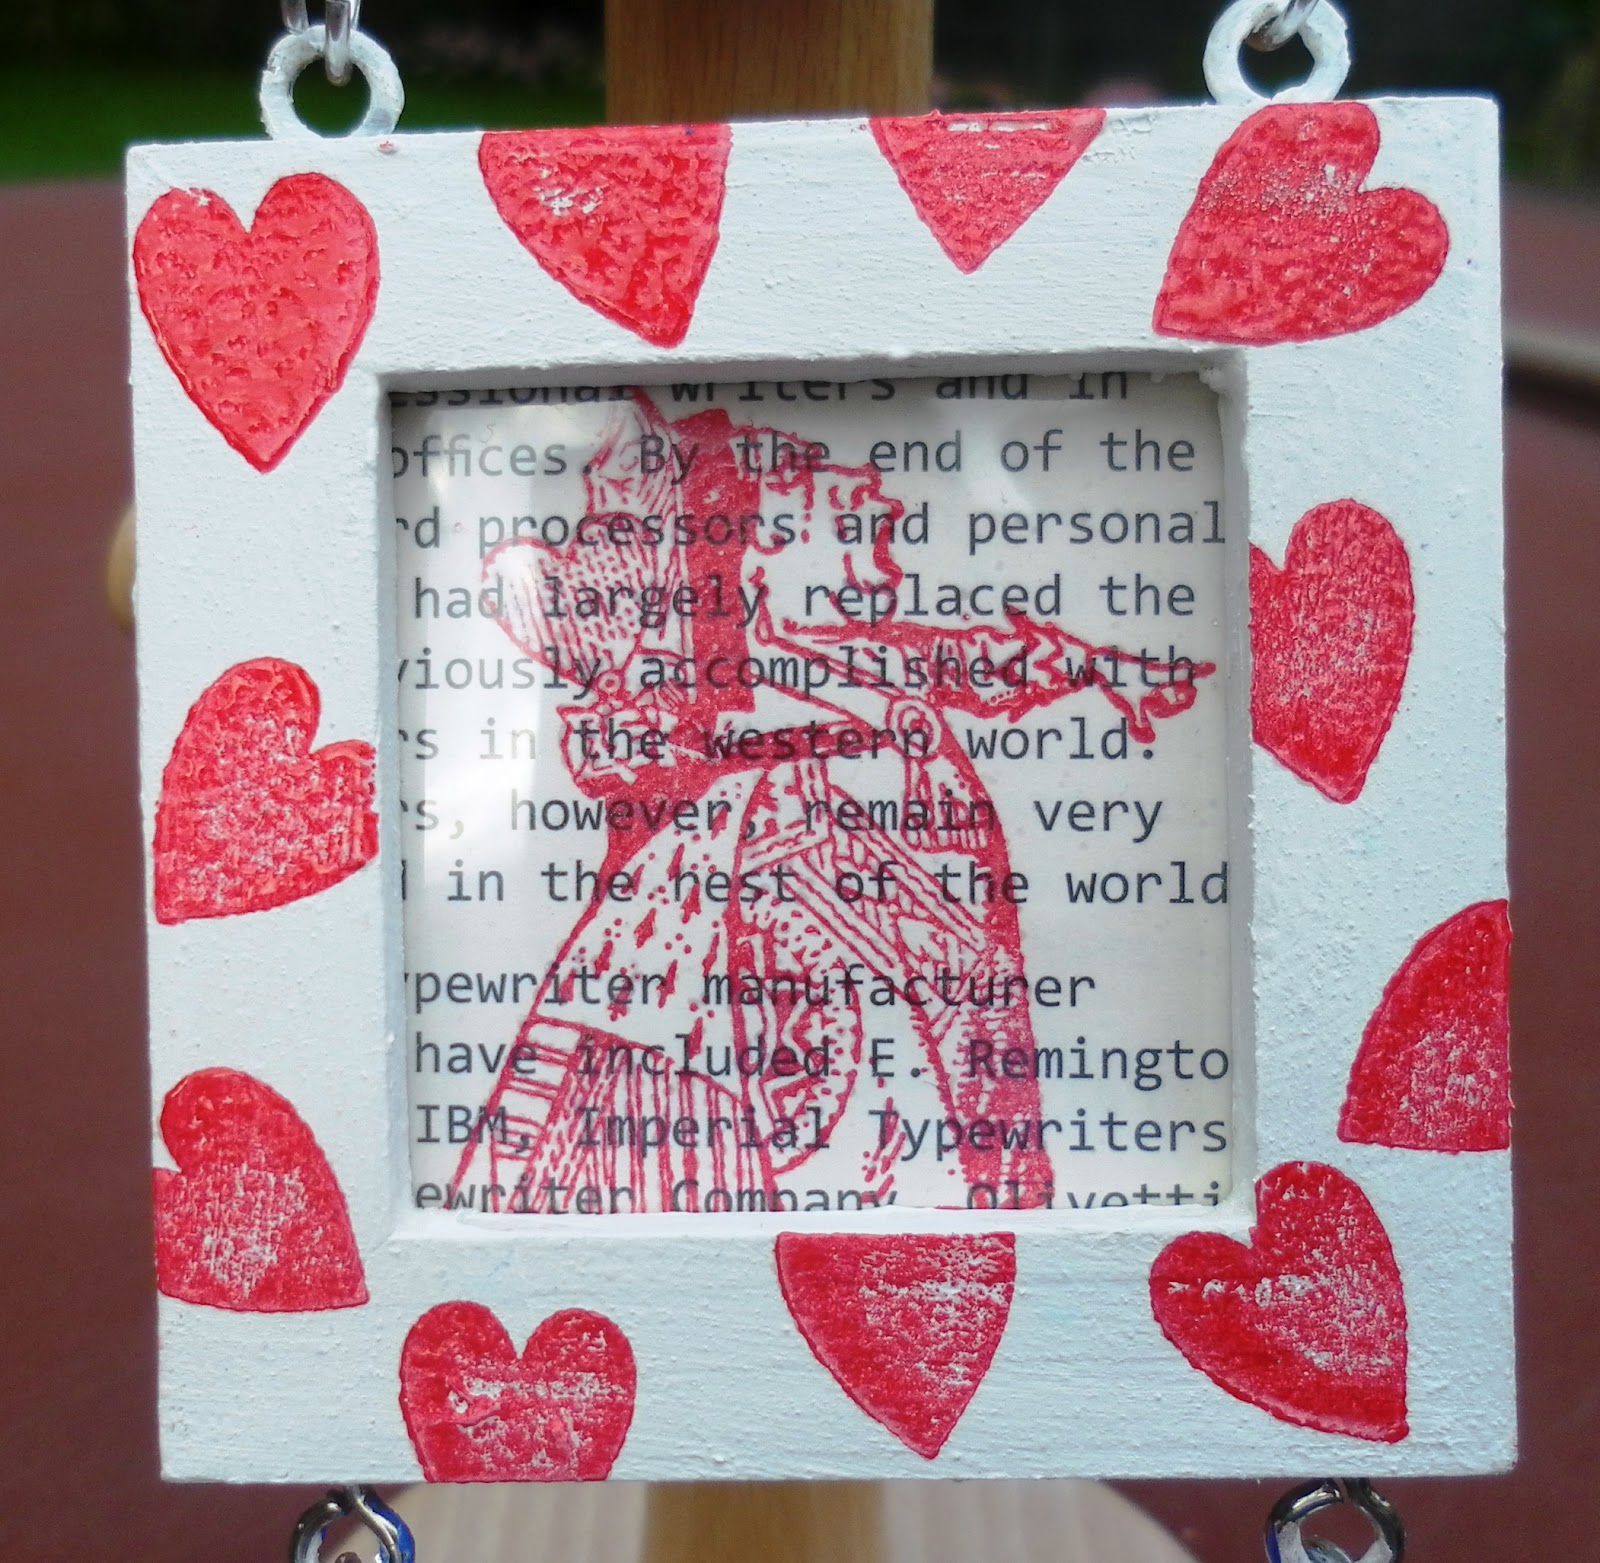 essional writers and in
offices. By the end of the
rd processors and personal
had largely replaced the
viously accomplished with
rs in the western world.
rs, however, remain very
d in the rest of the world
ypewriter manufacturer
have included E. Remingto
IBM, Imperial Typewriters
ewriter Company, Olivetti